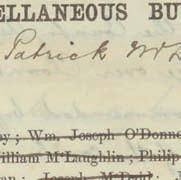 ELLANEOUS BU
Patrick
y; Wm. Joseph O'Donne
illiam M'Laughlin; Philip
an; Joseph M'Daid;